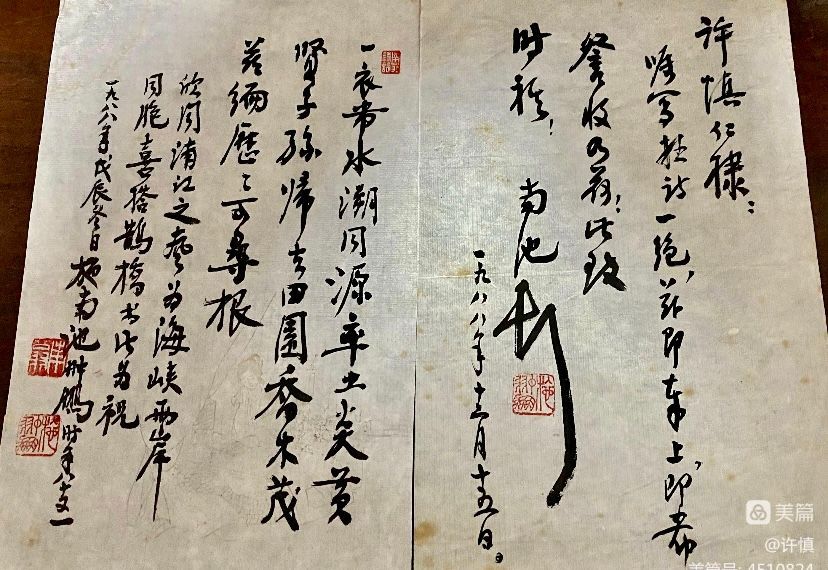 许慎仁棣：
嘱写拙诗一绝，兹即奉上，即希
詧收为荷！此致
时祺！ 南池
一九八八年十二月十五日。
一衣带水溯同源率土炎黄
贤子孫帰去田園乔木茂
缅歷〻可尋根
欣闻浦江之声为海峡两岸
同胞喜搭鹊橋书此为祝
一九八八年戊辰冬日施南池翀鹏时年八十又一
美篇
@许慎
美篇号: 4510824